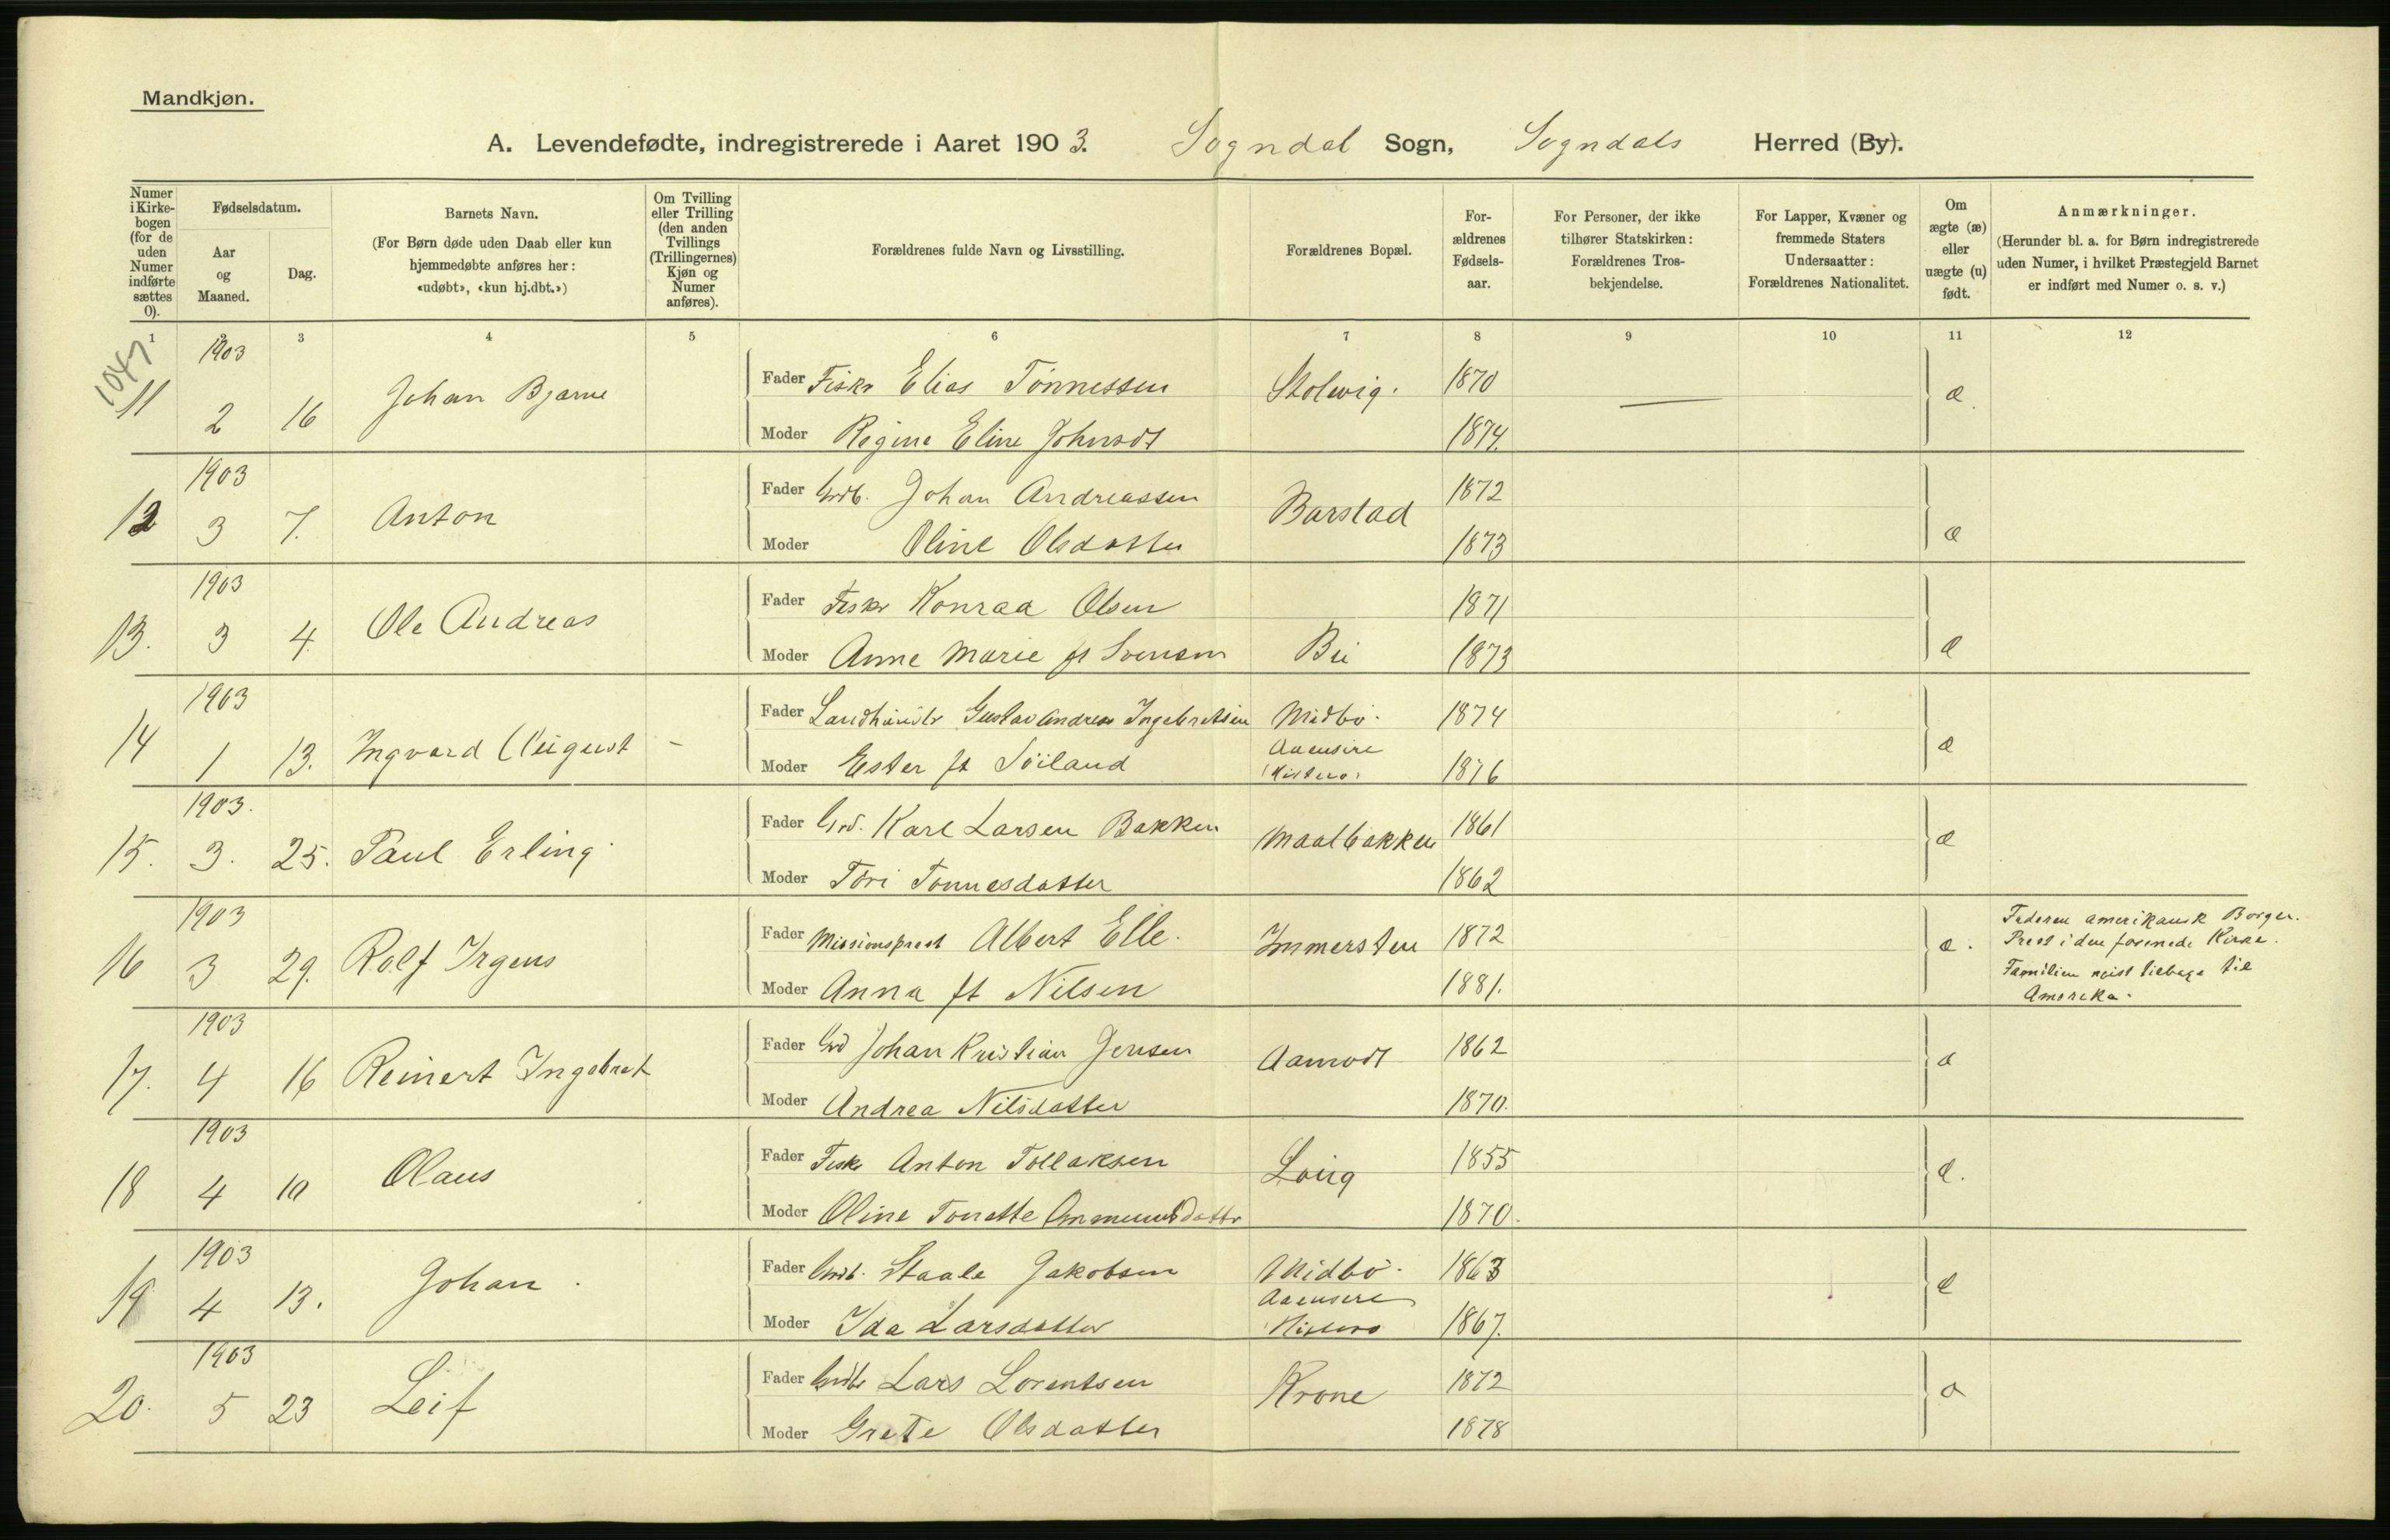 Mandkjøn.
A. Levendefødte, indregistrerede i Aaret 1903. Sogndal Sogn, Sogndals Herred (By).
Numer i Kirke-bogen (for de uden Numer indførte sættes 0).
Fødselsdatum.
Aar og Maaned.
Dag.
Barnets Navn.
(For Børn døde uden Daab eller kun hjemmedøbte anføres her: «udøbt», «kun hj.dbt.»)
Om Tvilling eller Trilling (den anden Tvillings (Trillingernes) Kjøn og Numer anføres).
Forældrenes fulde Navn og Livsstilling.
Forældrenes Bopæl.
For-ældrenes Fødsels-aar.
For Personer, der ikke tilhører Statskirken: Forældrenes Tros-bekjendelse.
For Lapper, Kvæner og fremmede Staters Undersaatter: Forældrenes Nationalitet.
Om ægte (æ) eller uægte (u) født.
Anmærkninger.
(Herunder bl. a. for Børn indregistrerede uden Numer, i hvilket Præstegjeld Barnet er indført med Numer o. s. v.)
1 2 3 4 5 6 7 8 9 10 11 12
1047
1903
11 2 16 Johan Bjarne Fader Fiskr Elias Tønnessen Stolwig. 1870 — æ.
Moder Regine Eline Johnsdt 1874.
1903
12 3 7. Anton Fader Grdb. Johan Andreassen Barstad 1872 æ
Moder Oline Olsdatter 1873
1903
13. 3 4. Ole Andreas Fader Fiskr Konrad Olsen 1871
Moder Anne Marie ft Svensen Bu 1873 æ
1903
14 1 13. Ingvard August - Fader Landhandlr Gustav Andreas Ingebretsen Midbö. 1874 æ
Aaensire
Moder Ester ft Söiland 1876
1903.
15. 3. 25. Paul Erling Fader Grd. Karl Larsen Bakken Maalbakken 1861 æ
Moder Tori Tonnesdatter 1862
1903
16 3 29. Rolf Irgens Fader Missionsprest Albert Elle. Immersten 1872 æ.
Moder Anna ft Nilsen 1881.
Faderen amerikansk Borger.
Prest i den forenede Kirke.
Familien reist tilbage til
Amerika.
1903
17. 4 16 Reinert Ingebret Fader Grd Johan Kristian Jensen Aamodt 1862 æ
Moder Andrea Nilsdatter 1870.
1903
18 4 10 Olaus Fader Fiskr Anton Tollaksen Loug 1855 æ.
Moder Oline Tonette Ommunds Dattr 1870.
1903
19 4 13. Johan. Fader Grdb. Staale Jakobsen Midbö. 1863 æ
Aaensire
Moder Ida Larsdatter 1867.
1903
20. 5 23 Leif Fader Grdbr Lars Lorentsen Krone 1872 æ
Moder Grete Olsdatter 1878